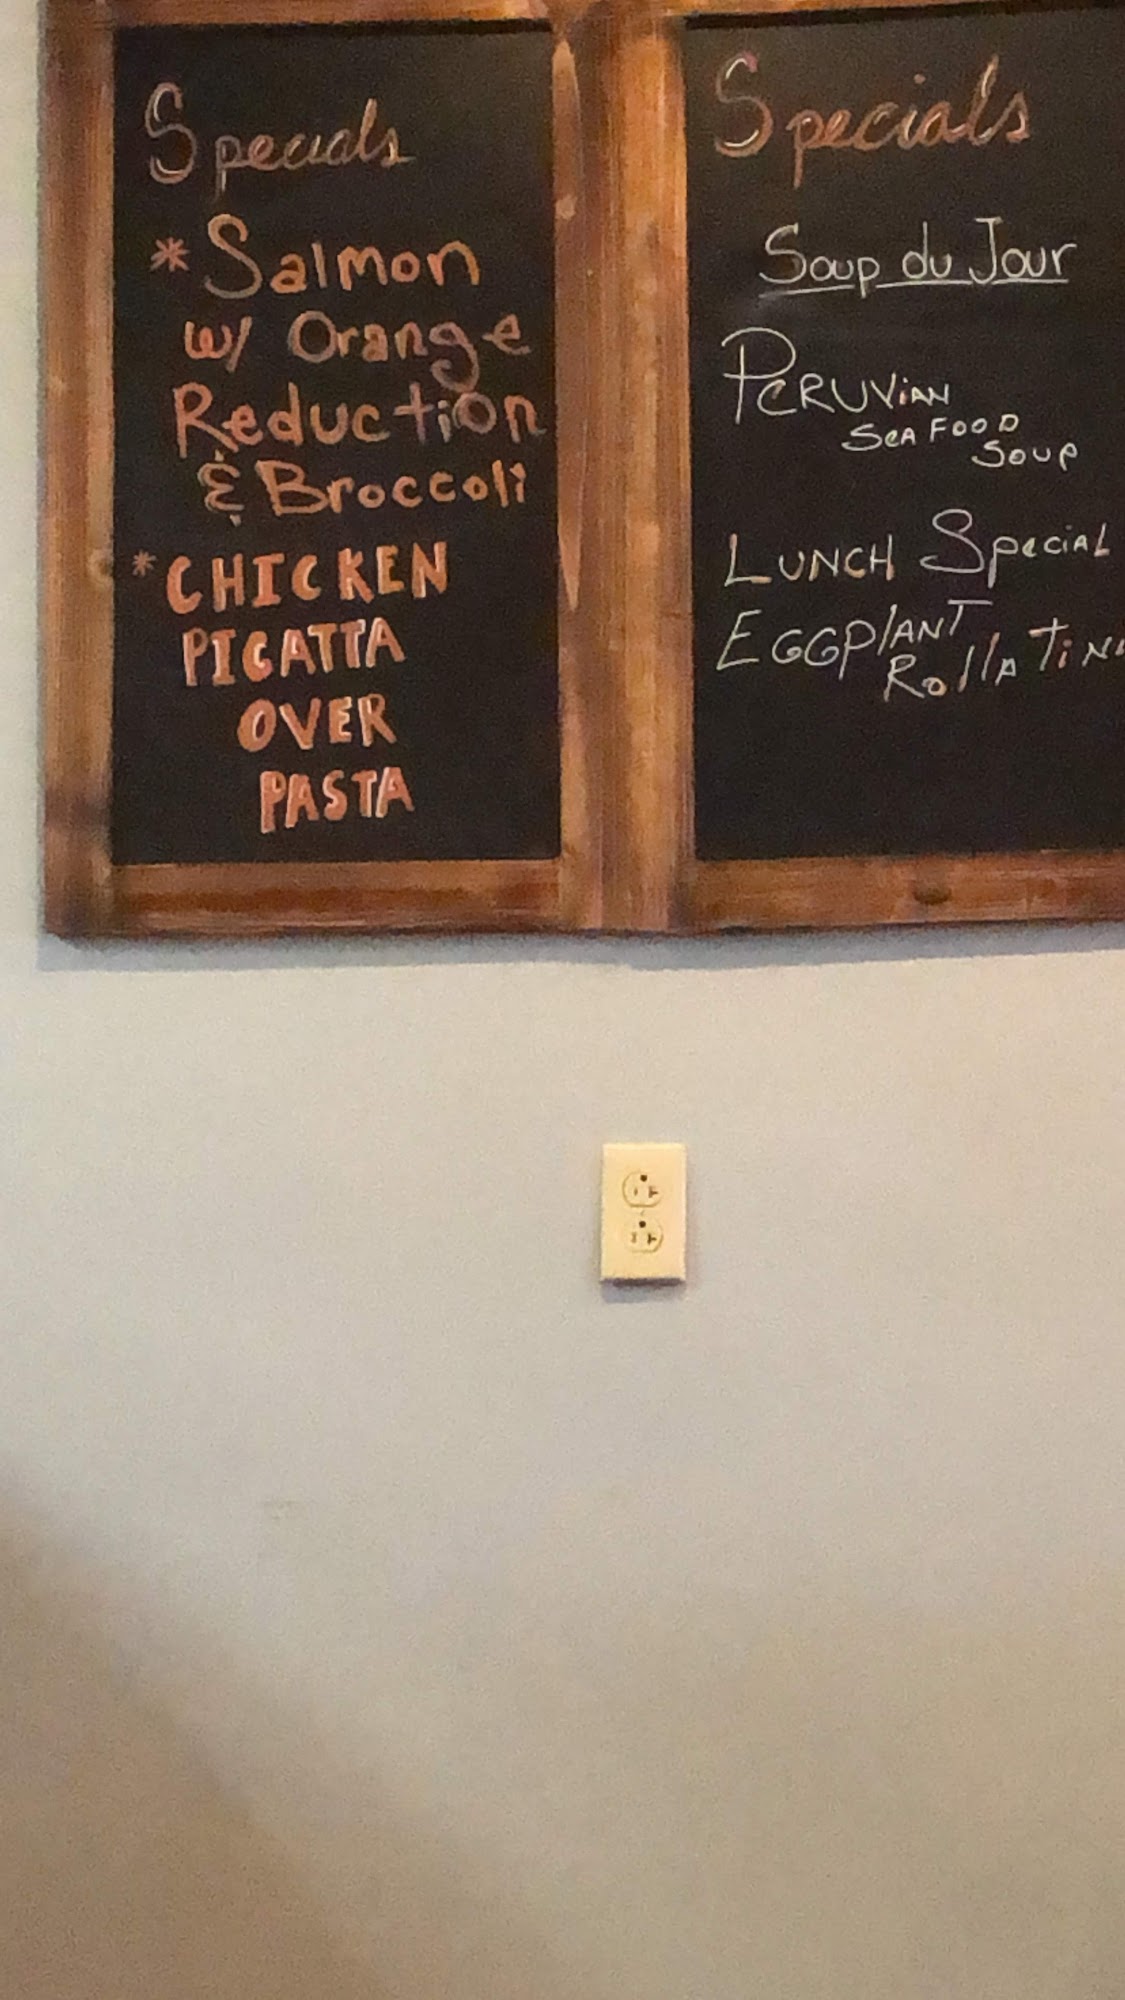 Specials
* Salmon
w/ Orange
Reduction
& Broccoli
* CHICKEN
PICATTA
OVER
PASTA
Specials
Soup du Jour
PERUViAN
SeAFOOD
Soup
LUNCH SpeciAL
EGGPlANT